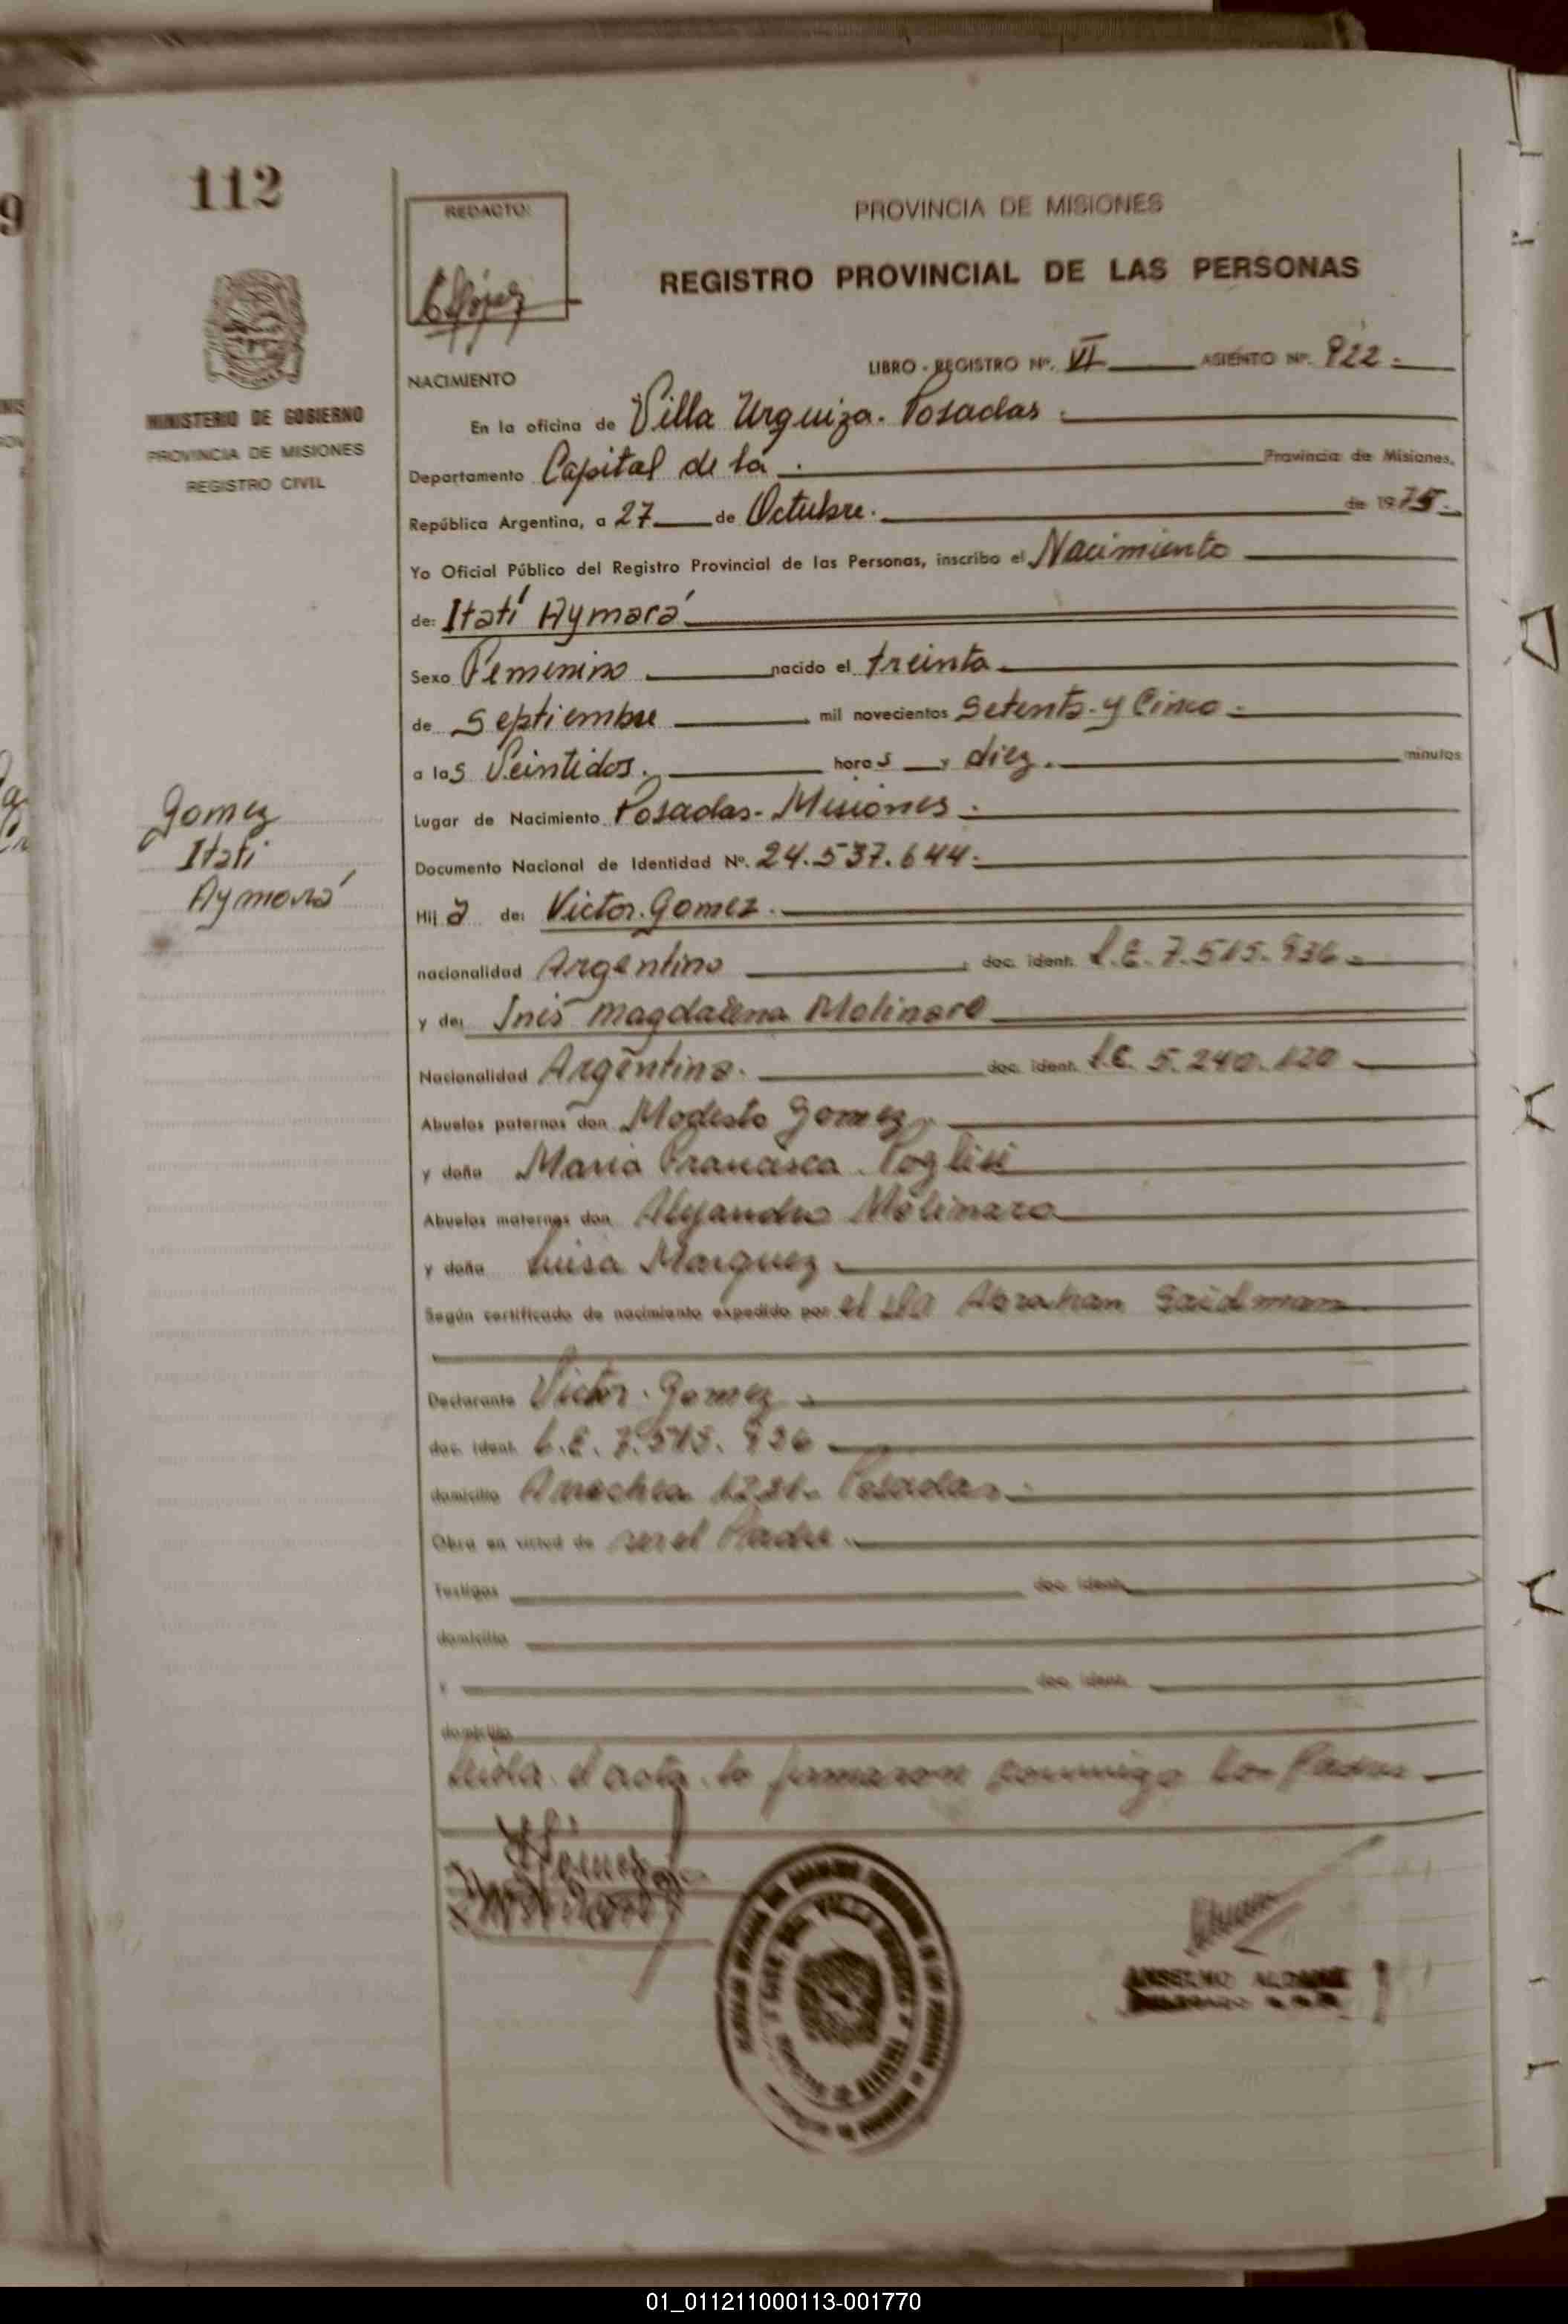 112
REDACTO:
PROVINCIA DE MISIONES
REGISTRO PROVINCIAL DE LAS PERSONAS
MINISTERIO DE GOBIERNO
PROVINCIA DE MISIONES
REGISTRO CIVIL
LIBRO - REGISTRO Nº. VI ASIENTO Nº. 922.
NACIMIENTO
En la oficina de Villa Urquiza. Posadas.
Departamento Capital de la. Provincia de Misiones,
República Argentina, a 27 de Octubre. de 1975.
Yo Oficial Público del Registro Provincial de las Personas, inscribo el Nacimiento
de: Itatí Aymará
Sexo Femenino nacido el treinta
de Septiembre mil novecientos Setenta y Cinco
a las Veintidos. horas y diez. minutos
Lugar de Nacimiento Posadas - Misiones.
Gomez
Itati
Aymará
Documento Nacional de Identidad Nº. 24.537.644
Hija de: Victor Gomez.
nacionalidad Argentino doc. ident. L.E. 7.515.936
y de: Inés Magdalena Molinaro
Nacionalidad Argentina. doc. ident. L.C. 5.240.120
Abuelos paternos don Modesto Gomez
y doña Maria Francisca
Abuelos maternos don Alejandro Molinaro
y doña Luisa Marquez
Según certificado de nacimiento expedido por el Abrahan Saidman
Declarante Victor Gomez
doc. ident. L.E. 7.515.936
domicilio Posadas
Obra en virtud de ser el Padre.
Testigos doc. ident.
domicilio
y doc. ident.
domicilio
Leida el acta la firmaron conmigo los Padres
ANSELMO
01_011211000113-001770